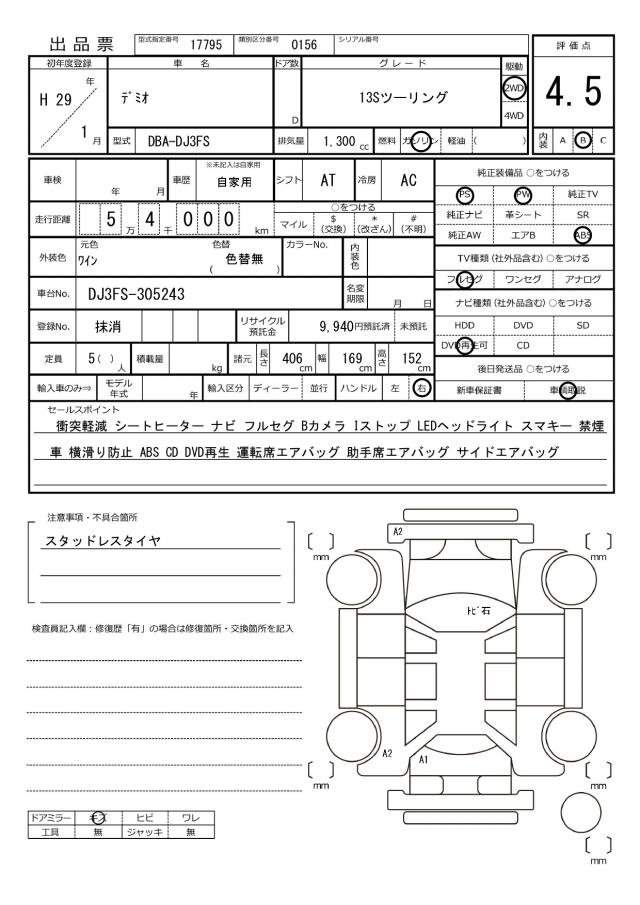 出品票
型式指定番号 17795 類別区分番号 0156 シリアル番号
評価点
4.5
初年度登録 車名 ドア数 グレード 駆動
H 29 年 1 月
ﾃﾞﾐｵ D 13Sツーリング 2WD 4WD
型式 DBA-DJ3FS 排気量 1.300 cc 燃料 ガソリン 軽油 ( )
内装 A B C
車検 年 月 車歴 ※未記入は自家用 自家用 シフト AT 冷房 AC
走行距離 5 万 4 千 0 0 0 km ○をつける
マイル $(交換) *(改ざん) #(不明)
外装色 元色 ﾜｲﾝ 色替 色替無 ( ) カラーNo. 内装色
車台No. DJ3FS-305243 名変期限 月 日
登録No. 抹消 リサイクル預託金 9,940円預託済 未預託
定員 5 ( ) 人 積載量 kg 諸元 長さ 406 cm 幅 169 cm 高さ 152 cm
輸入車のみ⇒ モデル年式 年 輸入区分 ディーラー 並行 ハンドル 左 右
純正装備品 ○をつける
PS PW 純正TV
純正ナビ 革シート SR
純正AW エアB ABS
TV種類(社外品含む) ○をつける
フルセグ ワンセグ アナログ
ナビ種類(社外品含む) ○をつける
HDD DVD SD
DVD再生可 CD
後日発送品 ○をつける
新車保証書 車輌取説
セールスポイント
衝突軽減 シートヒーター ナビ フルセグ Bカメラ Iストップ LEDヘッドライト スマキー 禁煙
車 横滑り防止 ABS CD DVD再生 運転席エアバッグ 助手席エアバッグ サイドエアバッグ
注意事項・不具合箇所
スタッドレスタイヤ
検査員記入欄：修復歴「有」の場合は修復箇所・交換箇所を記入
A2
mm mm
ﾄﾋﾞ石
A2 A1
mm mm
mm
ドアミラー キズ ヒビ ワレ
工具 無 ジャッキ 無